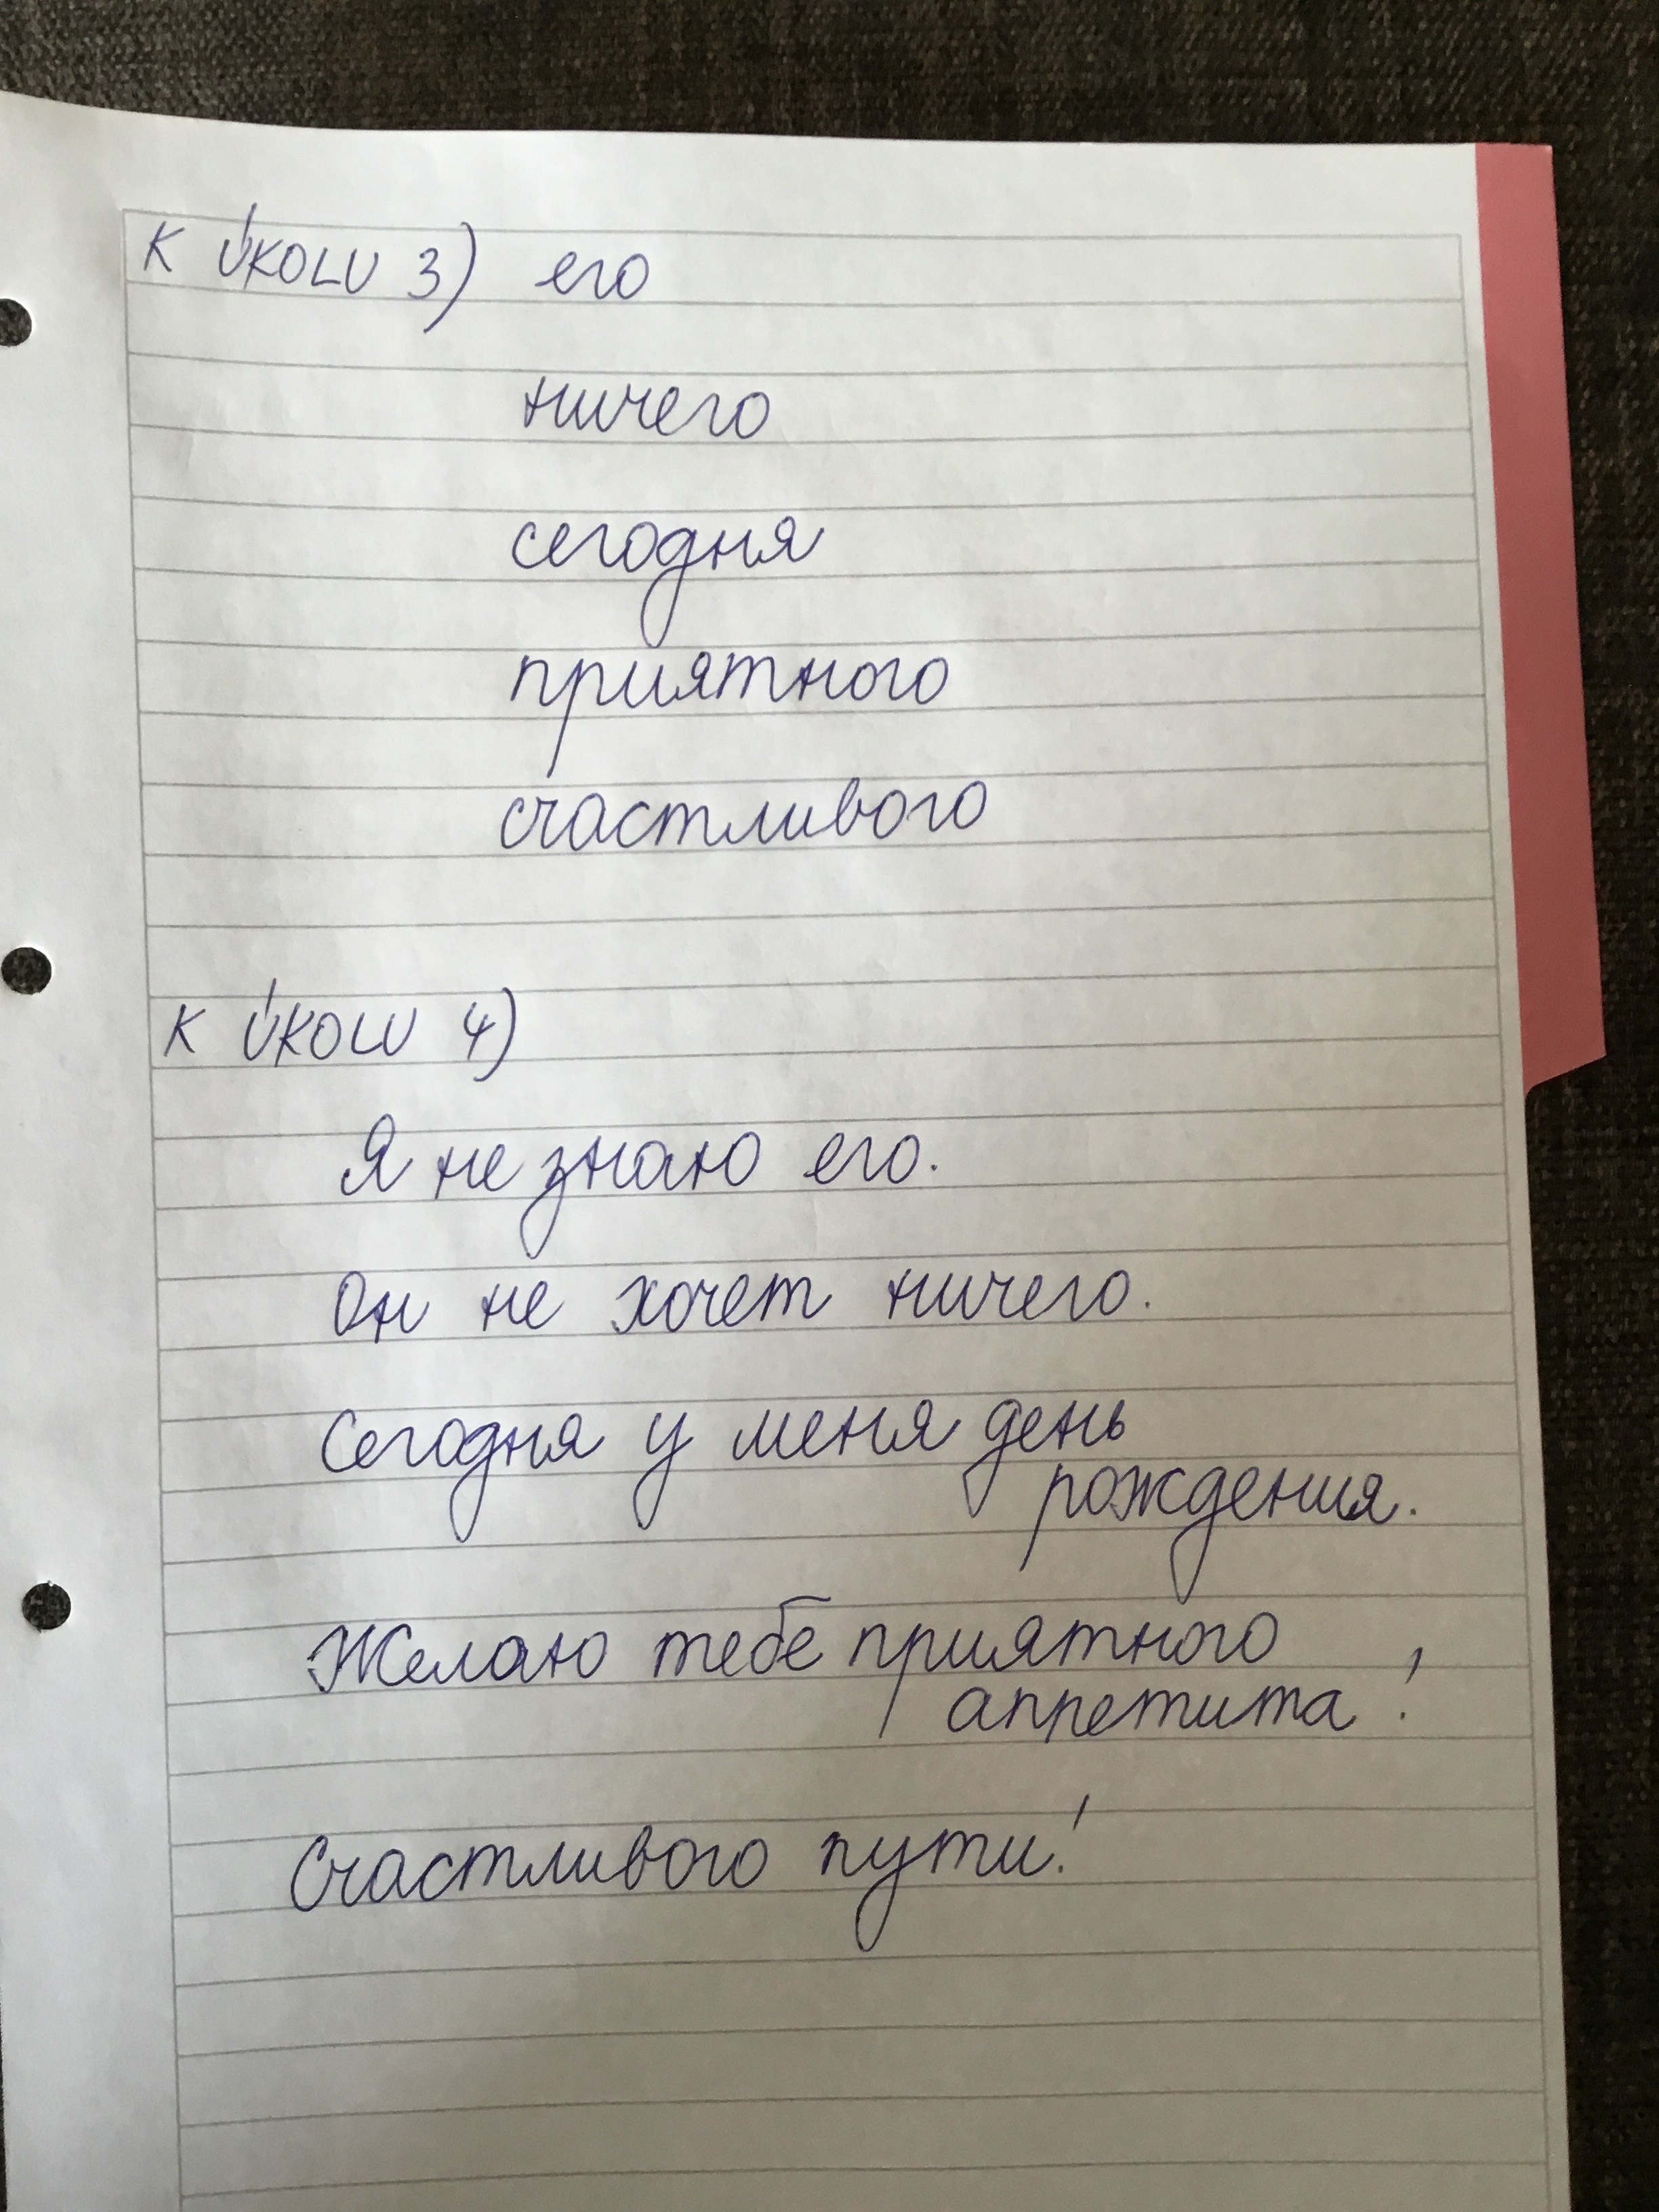 K ÚKOLU 3) его
ничего
сегодня
приятного
счастливого
K ÚKOLU 4)
Я не знаю его.
Он не хочет ничего.
Сегодня у меня день
рождения.
Желаю тебе приятного
аппетита!
Счастливого пути!